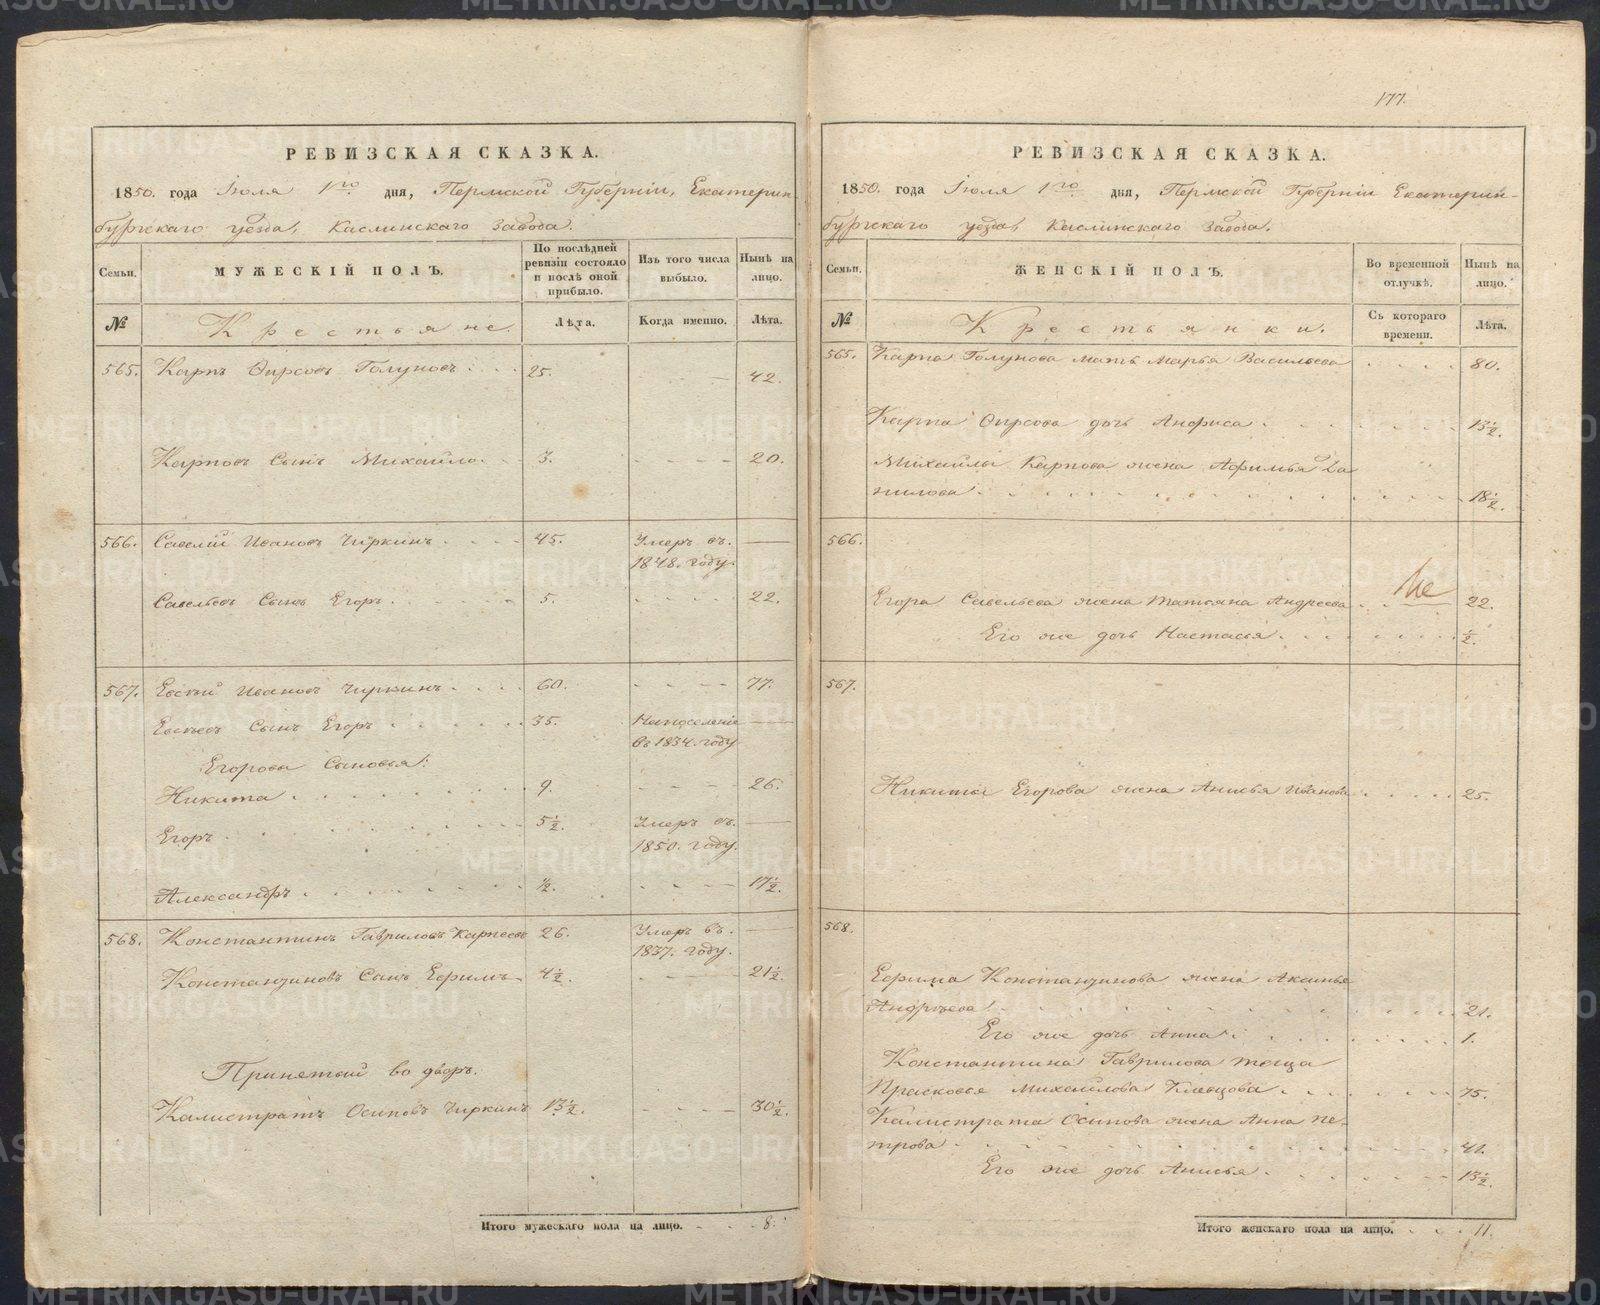 177.
РЕВИЗСКАЯ СКАЗКА.
1850. года Іюля 1го дня, Пермской Губерніи, Екатерин
бургскаго уезда, Каслинскаго Завода.
Семьи.
МУЖЕСКІЙ ПОЛЪ.
По послѣдней ревизіи состояло и послѣ оной прибыло.
Изъ того числа выбыло.
Нынѣ на лицо.
№
Крестьяне.
Лѣта.
Когда именно.
Лѣта.
565. Карпъ Фирсовъ Голуновъ 25. 42.
Карповъ Сынъ Михайло 3. 20.
566. Савелій Ивановъ Чиркинъ 45. Умеръ въ.
1848. году.
Савельевъ Сынъ Егоръ 5. 22.
567. Евсѣй Ивановъ Чиркинъ 60. 77.
Евсѣевъ Сынъ Егоръ 35. На поселеніе
въ 1834. году
Егорова Сыновья:
Никита 9. 26.
Егоръ 5½. Умеръ въ.
1850. году.
Александръ ½. 17½.
568. Константинъ Гавриловъ Карпеевъ 26. Умеръ въ.
1837. году.
Константиновъ Сынъ Ефимъ 4½. 21½.
Принетый во дворъ.
Калистратъ Осиповъ Чиркинъ 13½. 30½.
Итого мужескаго пола на лицо. 8.
РЕВИЗСКАЯ СКАЗКА.
1850. года Іюля 1го дня, Пермской Губерніи Екатерин-
бургскаго уезда, Каслинскаго Завода.
Семьи.
ЖЕНСКІЙ ПОЛЪ.
Во временной отлучкѣ.
Нынѣ на лицо.
№
Крестьянки.
Съ котораго времени.
Лѣта.
565. Карпа Голунова мать Марья Васильева 80.
Карпа Фирсова дочь Анфиса 13½.
Михайлы Карпова жена Афимья Да
нилова 18½.
566.
Не
Егора Савельева жена Татьяна Андреева 22.
Его же дочь Настасья ½.
567.
Никиты Егорова жена Анисья Иванова 25.
568.
Ефима Константинова жена Аксинья
Андрѣева 21.
Его же дочь Анна 1.
Константина Гаврилова теща
Прасковья Михайлова Клевцова 75.
Калистрата Осипова жена Анна Пе-
трова 41.
Его же дочь Анисья 13½.
Итого женскаго пола на лицо. 11.
METRIKI.GASO-URAL.RU